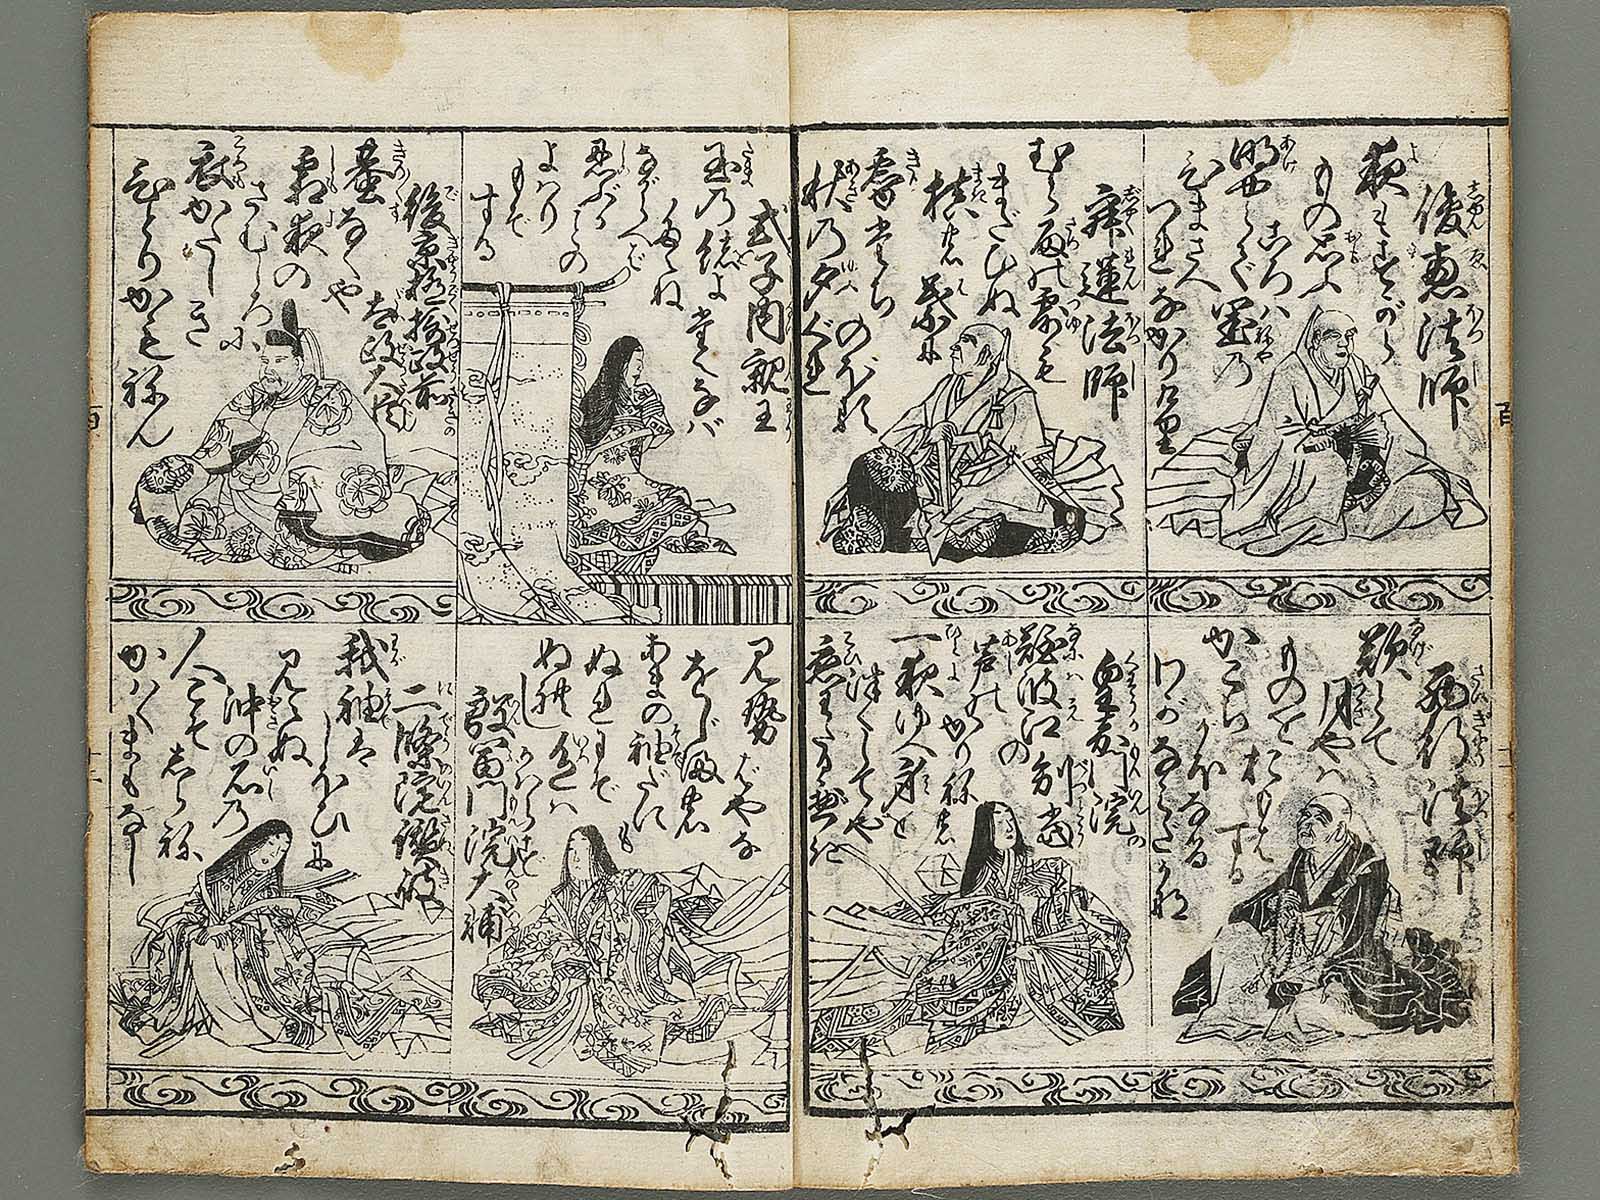 俊恵法師
夜もすがら
もの思ふ
ころハ
明やらで閨乃
ひまさへ
つれなかりけり
寂蓮法師
むら雨の露も
まだひぬ
槙の葉に
霧たちのぼる
秋乃夕ぐれ
西行法師
歎けとて
月やハ
ものを
おもはする
かこち
がほなる
わがなみだかな
皇嘉門院別当
難波江の
芦のかりねの
一夜ゆへ身を
つくしてや
恋わたるべき
式子内親王
玉乃緒よたえなバ
たえね
ながらへバ
忍ぶる
ことの
よハり
もぞ
する
後京極摂政前
太政大臣
蛬なくや
霜夜の
さむしろに
衣かたしき
ひとりかもねん
見勢ばやな
をじま
あまの袖だに
も
ぬれにぞ
ぬれし色ハ
かハらず
殷富門院大輔
二條院讃岐
我袖は
しほひに
見えぬ
沖の石乃
人こそしらね
かハくまもなし